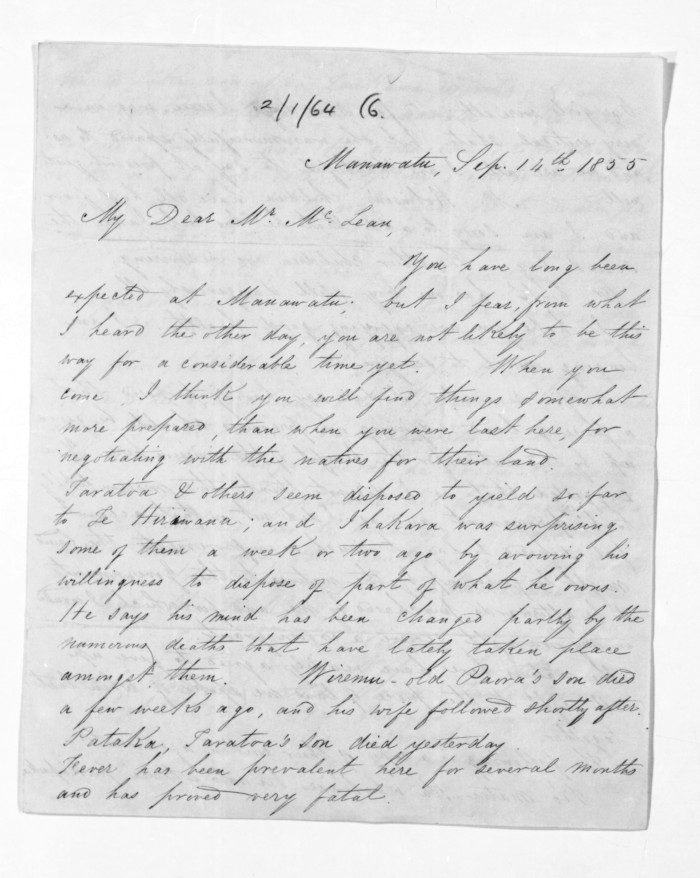 2/1/64 (6.
Manawatu, Sep. 14th 1855
My Dear Mr. McLean,
You have long been
expected at Manawatu; but I fear, from what
I heard the other day, you are not likely to be this
way for a considerable time yet. When you
come, I think you will find things somewhat
more prepared, than when you were last here, for
negotiating with the natives for their land.
Taratoa & others seem disposed to yield so far
to Te Hirawana; and Ihakara was surprising
some of them a week or two ago by avowing his
willingness to dispose of part of what he owns.
He says his mind has been changed partly by the
numerous deaths that have lately taken place
amongst them. Wiremu - old Paora's son died
a few weeks ago, and his wife followed shortly after.
Pataka, Taratoa's son died yesterday.
Fever has been prevalent here for several months
and has proved very fatal.